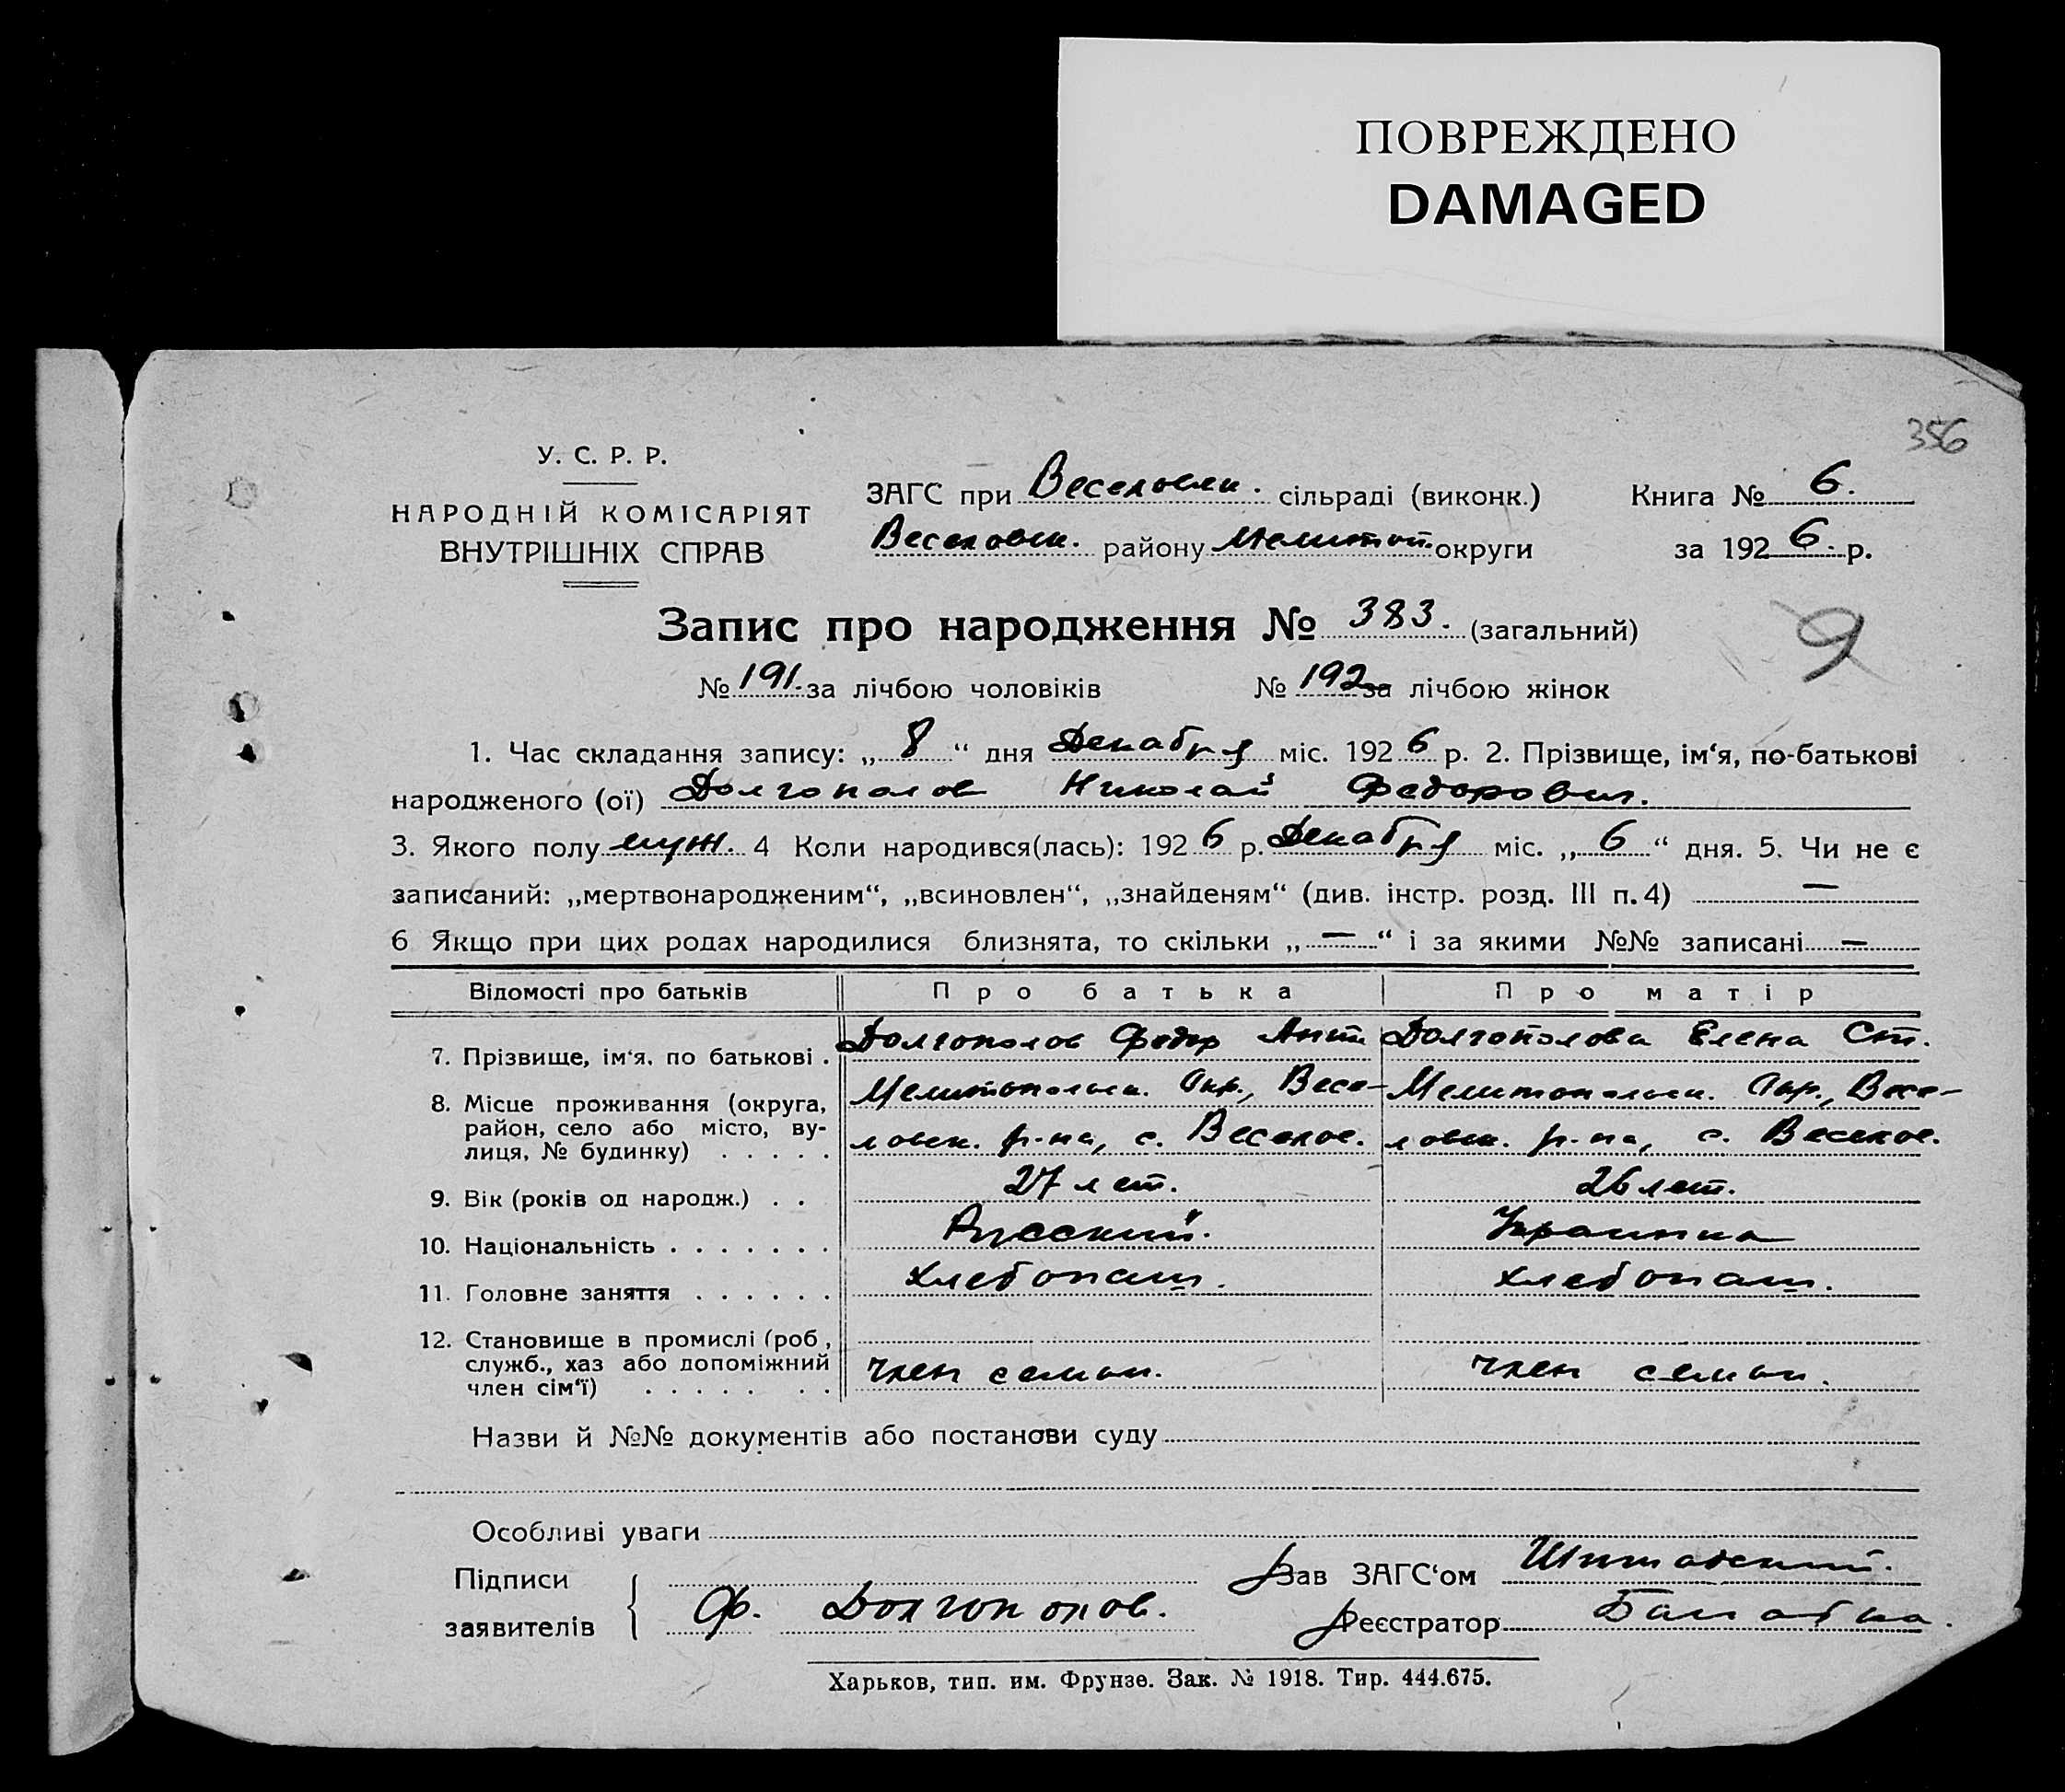 ПОВРЕЖДЕНО
DAMAGED
356
У. С. Р. Р.
НАРОДНІЙ КОМІСАРІЯТ
ВНУТРІШНІХ СПРАВ
ЗАГС при Веселовск. сільраді (виконк.)
Книга № 6.
Веселовск. району Мелитоп. округи
за 1926. р.
Запис про народження № 383. (загальний)
9
№ 191. за лічбою чоловіків № 192 за лічбою жінок
1. Час складання запису: „ 8 “ дня Декабря міс. 1926 р. 2. Прізвище, ім‘я, по-батькові
народженого (ої) Долгополов Николай Федорович.
3. Якого полу муж. 4 Коли народився(лась): 1926 р. Декабря міс. „ 6 “ дня. 5. Чи не є
записаний: „мертвонародженим“, „всиновлен“, „знайденям“ (див. інстр. розд. III п. 4) —
6 Якщо при цих родах народилися близнята, то скільки „ — “ і за якими №№ записані —
Відомості про батьків Про батька Про матір
7. Прізвище, ім‘я, по батькові . Долгополов Федор Ант. Долгополова Елена Ст.
8. Місце проживання (округа, Мелитопольск. Окр., Весе- Мелитопольск. Окр., Весе-
район, село або місто, ву- ловск. р-на, с. Веселое. ловск. р-на, с. Веселое.
лиця, № будинку) . . . . .
9. Вік (років од народж.) . . 27 лет. 26 лет.
10. Національність . . . . . . . Русский. Украинка
11. Головне заняття . . . . . . Хлебопаш. Хлебопаш.
12. Становище в промислі (роб,
служб., хаз або допоміжний член семьи. член семьи.
член сім‘ї) . . . . . . .
Назви й №№ документів або постанови суду
Особливі уваги
Підписи
заявителів
Ф. Долгополов.
Зав ЗАГС‘ом
Реєстратор
Харьков, тип. им. Фрунзе. Зак. № 1918. Тир. 444.675.